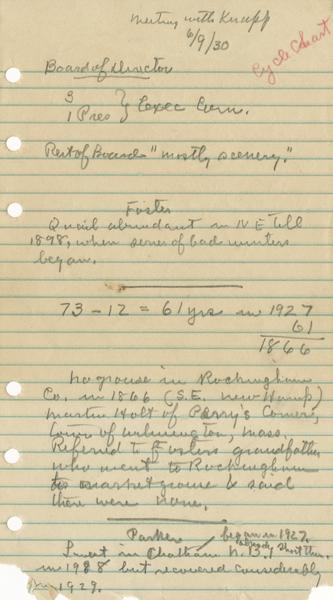 Meeting with Knapp
6/9/30
Cycle Chart
Board of Director
3
1 Pres } Exec Com.
Rest of Board "mostly scenery."
Foster
Quail abundant in N E till
1898, when series of bad winters
began.
73 - 12 = 61 yrs in 1927
61
1866
No grouse in Rockingham
Co. in 1866 (S.E. New Hamp)
Martin Holt of Perry's Corner,
town of Wilmington, Mass.
Referred to Fosters grandfather
who went to Rockingham
to market grouse & said
there were none.
Parker
began in 1927.
short then.
in Chatham N.B.
in 1928 but recovered considerably
in 1929.